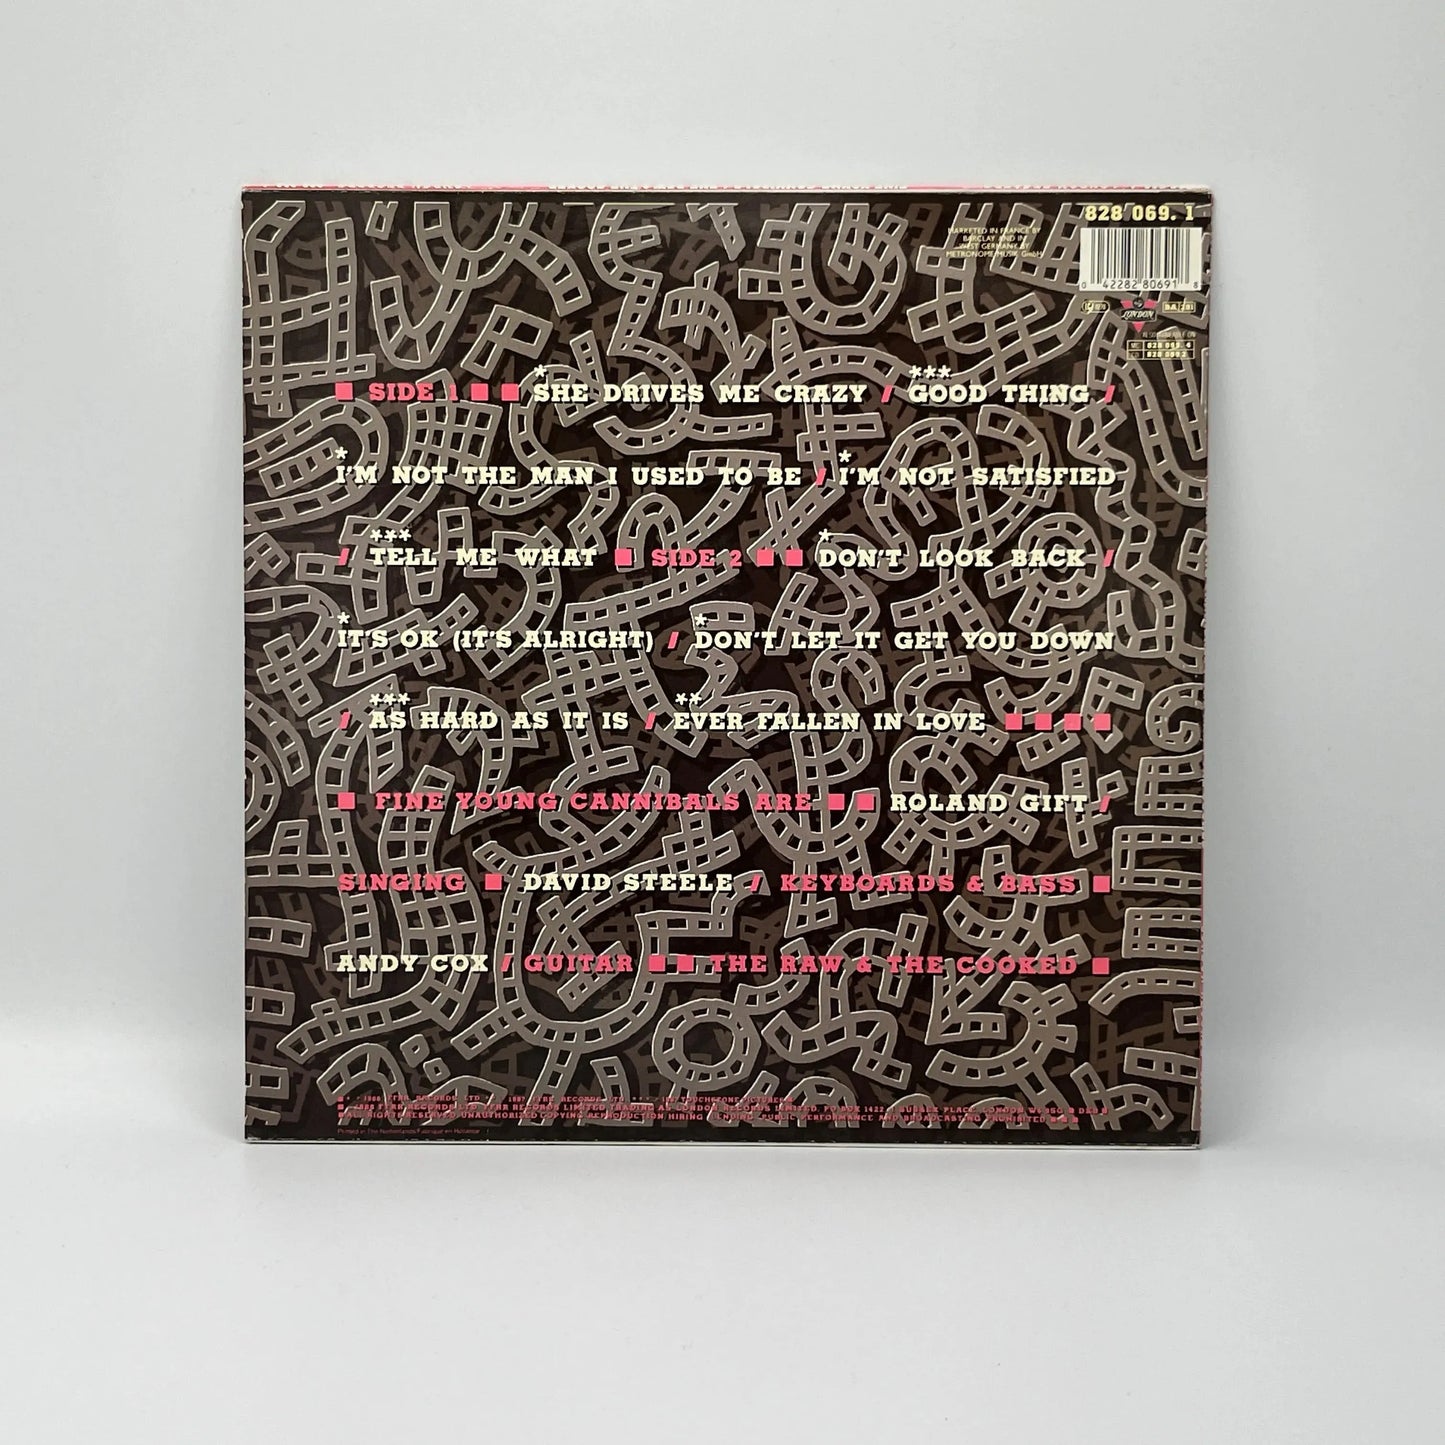 828 069. 1
MARKETED IN FRANCE BY
BARCLAY AND IN
WEST GERMANY BY
METRONOME MUSIK GmbH
0 42282 80691 8
LONDON
BA 281
MC 828 069. 4
CD 828 069 2
■ SIDE 1 ■ ■ *SHE DRIVES ME CRAZY / ***GOOD THING /
*I'M NOT THE MAN I USED TO BE / *I'M NOT SATISFIED
/ ***TELL ME WHAT ■ SIDE 2 ■ ■ *DON'T LOOK BACK /
*IT'S OK (IT'S ALRIGHT) / *DON'T LET IT GET YOU DOWN
/ ***AS HARD AS IT IS / **EVER FALLEN IN LOVE ■ ■ ■ ■
■ FINE YOUNG CANNIBALS ARE ■ ■ ROLAND GIFT /
SINGING ■ DAVID STEELE / KEYBOARDS & BASS ■
ANDY COX / GUITAR ■ ■ THE RAW & THE COOKED ■
FFRR RECORDS LTD 1987 FFRR RECORDS LTD 1987 TOUCHSTONE PICTURES
FFRR RECORDS LTD FFRR RECORDS LIMITED TRADING AS LONDON RECORDS LIMITED, PO BOX 1422, SUSSEX PLACE, LONDON W6
ALL RIGHTS RESERVED UNAUTHORIZED COPYING REPRODUCTION HIRING LENDING PUBLIC PERFORMANCE AND BROADCASTING PROHIBITED ■ ■ ■
Printed in The Netherlands